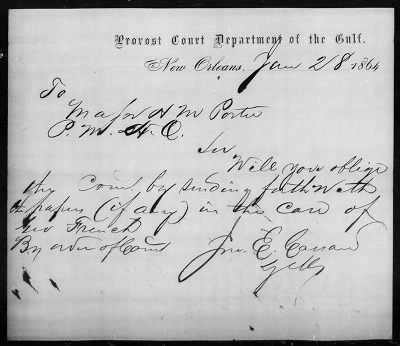 Provost Court Department of the Gulf.
New Orleans, Jan 28 1864
To
Major H M Porter
P. M.
Sir
Will you oblige
the Court by sending forthwith
the papers (if any) in the case of
Geo French
By order of Court Jno. E.